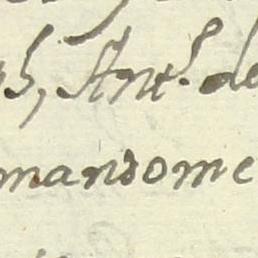 Ant.º de
mandome